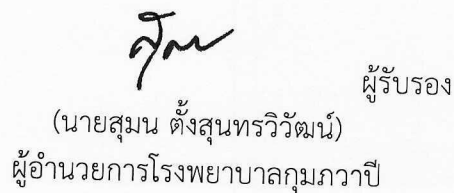 ผู้รับรอง
(นายสุมน ตั้งสุนทรวิวัฒน์)
ผู้อำนวยการโรงพยาบาลกุมภวาปี